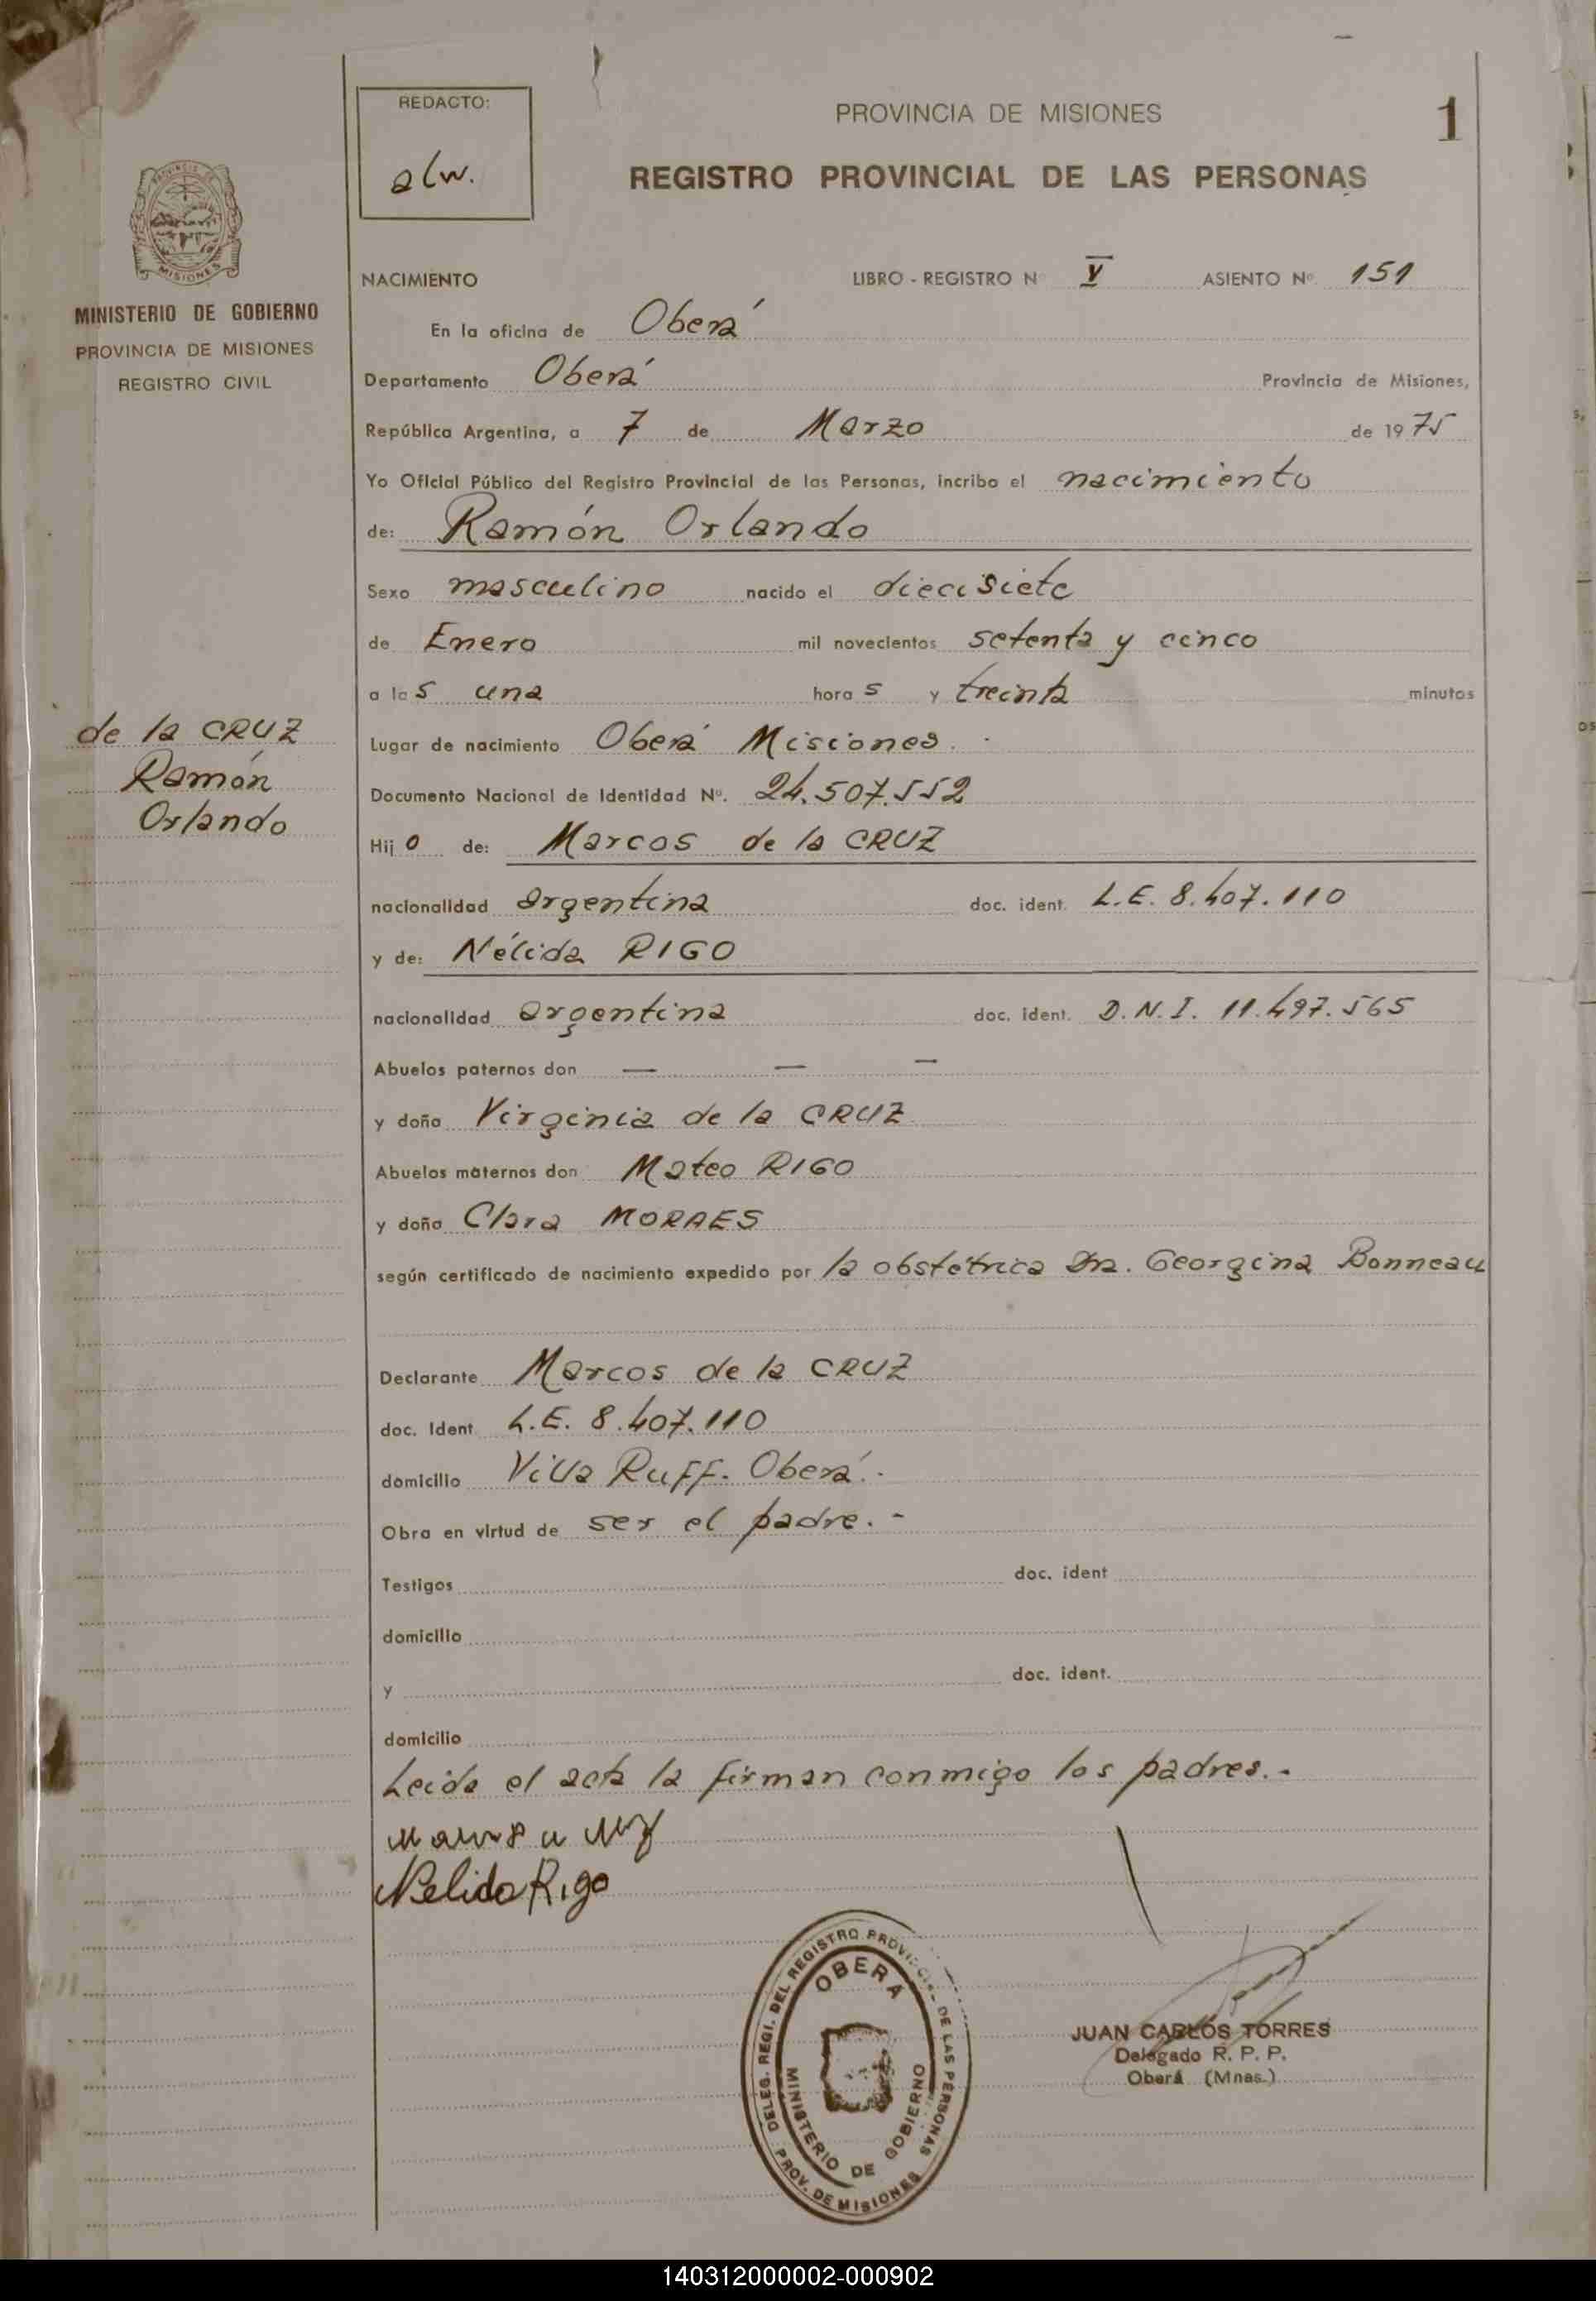 REDACTO:
alw.
PROVINCIA DE MISIONES
1
REGISTRO PROVINCIAL DE LAS PERSONAS
MISIONES
MINISTERIO DE GOBIERNO
PROVINCIA DE MISIONES
REGISTRO CIVIL
NACIMIENTO LIBRO - REGISTRO Nº V ASIENTO Nº 151
En la oficina de Oberá
Departamento Oberá Provincia de Misiones,
República Argentina, a 7 de Marzo de 1975
Yo Oficial Público del Registro Provincial de las Personas, incribo el nacimiento
de: Ramón Orlando
Sexo masculino nacido el diecisiete
de Enero mil novecientos setenta y cinco
a las una horas y treinta minutos
de la CRUZ
Ramón
Orlando
Lugar de nacimiento Oberá Misiones.
Documento Nacional de Identidad Nº. 24.507.552
Hijo de: Marcos de la CRUZ
nacionalidad argentina doc. ident. L.E. 8.407.110
y de: Nélida RIGO
nacionalidad argentina doc. ident. D.N.I. 11.497.565
Abuelos paternos don — — —
y doña Virginia de la CRUZ
Abuelos maternos don Mateo RIGO
y doña Clara MORAES
según certificado de nacimiento expedido por la obstétrica Dra. Georgina Bonneau
Declarante Marcos de la CRUZ
doc. Ident. L.E. 8.407.110
domicilio Villa Ruff. Oberá.-
Obra en virtud de ser el padre.-
Testigos doc. ident
domicilio
y doc. ident.
domicilio
Leida el acta la firman conmigo los padres.-
Nelida Rigo
DELEG. REGI. DEL REGISTRO PROVINCIAL DE LAS PERSONAS
OBERA
MINISTERIO DE GOBIERNO
PROV. DE MISIONES
JUAN CARLOS TORRES
Delegado R. P. P.
Oberá (Mnes.)
140312000002-000902